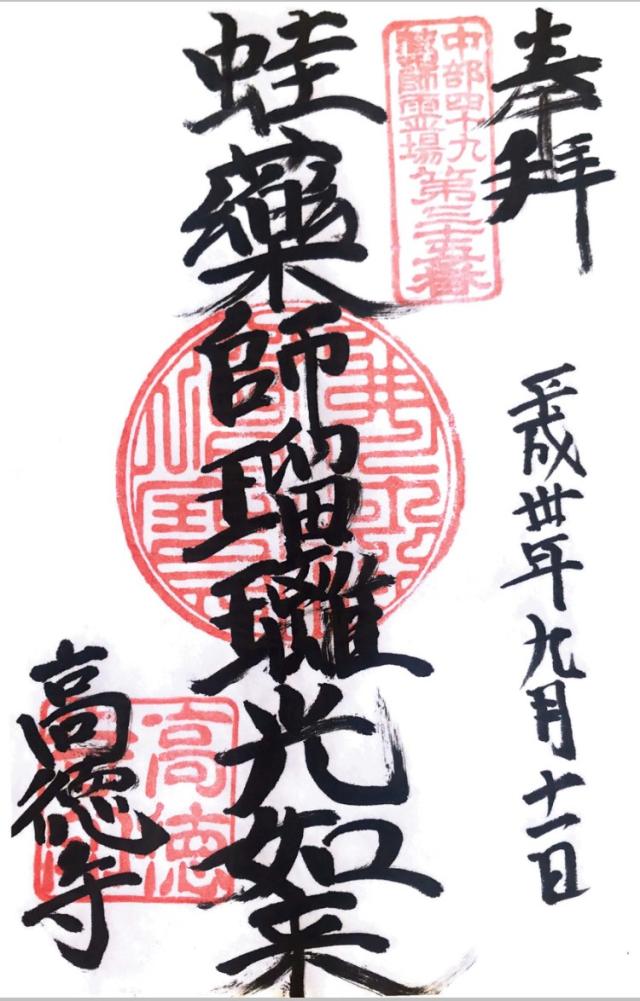 奉拝
中部四十九
薬師霊場第三十五番
平成卅年九月十一日
蛙藥師瑠璃光如来
高徳寺
高徳